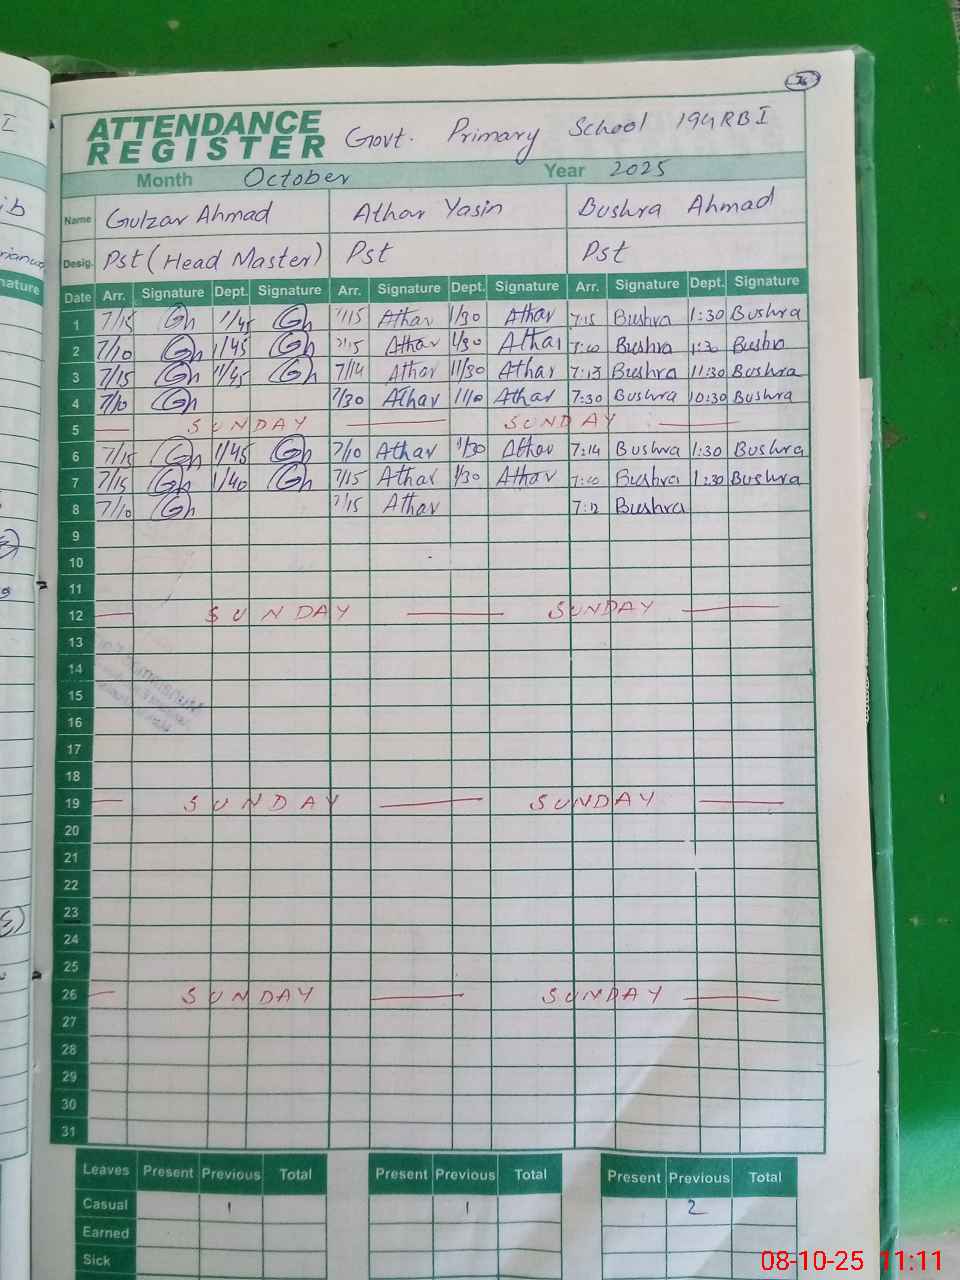 ATTENDANCE REGISTER Govt. Primary School 194RB I
Month October Year 2025
Name Gulzar Ahmad Athar Yasin Bushra Ahmad
Desig. Pst (Head Master) Pst Pst
Date Arr. Signature Dept. Signature Arr. Signature Dept. Signature Arr. Signature Dept. Signature
1 7/15 Gh 1/45 Gh 7/15 Athar 1/30 Athar 7:15 Bushra 1:30 Bushra
2 7/10 Gh 1/45 Gh 7/15 Athar 1/30 Athar Bushra Bushra
3 7/15 Gh 11/45 Gh 7/14 Athar 11/30 Athar 7:13 Bushra 11:30 Bushra
4 7/10 Gh 7/30 Athar Athar 7:30 Bushra 10:30 Bushra
5 SUNDAY SUNDAY
6 7/15 Gh 1/45 Gh 7/10 Athar 1/30 Athar 7:14 Bushra 1:30 Bushra
7 7/15 Gh 1/40 Gh 7/15 Athar 1/30 Athar Bushra 1:30 Bushra
8 7/10 Gh 7/15 Athar 7:12 Bushra
9
10
11
12 SUNDAY SUNDAY
13
14
15
16
17
18
19 SUNDAY SUNDAY
20
21
22
23
24
25
26 SUNDAY SUNDAY
27
28
29
30
31
Leaves Present Previous Total Present Previous Total Present Previous Total
Casual 1 1 2
Earned
Sick
08-10-25 11:11